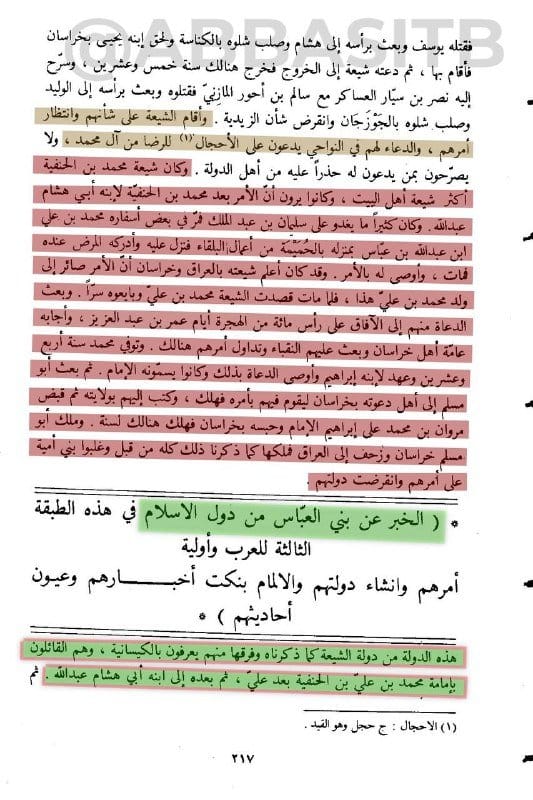 @ABBASITB
فقتله يوسف وبعث برأسه إلى هشام وصلب شلوه بالكناسة ولحق إبنه يحيى بخراسان
فأقام بها ، ثم دعته شيعة إلى الخروج فخرج هنالك سنة خمس وعشرين ، وسرّح
إليه نصر بن سيّار العساكر مع سالم بن أحور المازنيّ فقتلوه وبعث برأسه إلى الوليد
وصلب شلوه بالجَوْزَجَان وانقرض شأن الزيدية . وأقام الشيعة على شأنهم وانتظار
أمرهم ، والدعاء لهم في النواحي يدعون على الأحجال (١) للرضا من آل محمد ، ولا
يصرّحون بمن يدعون له حذراً عليه من أهل الدولة . وكان شيعة محمد بن الحنفية
أكثر شيعة أهل البيت ، وكانوا يرون أنّ الأمر بعد محمد بن الحنفيّة لإبنه أبي هشام
عبدالله . وكان كثيراً ما يغدو على سليمان بن عبد الملك فمرّ في بعض أسفاره محمد بن علي
ابن عبدالله بن عبّاس بمنزله بالحُمَيْمَة من أعمال البلقاء فنزل عليه وأدركه المرض عنده
فمات ، وأوصى له بالأمر . وقد كان أعلم شيعته بالعراق وخراسان أنّ الأمر صائر إلى
ولد محمد بن عليّ هذا ، فلما مات قصدت الشيعة محمد بن عليّ وبايعوه سرّاً . وبعث
الدعاة منهم إلى الآفاق على رأس مائة من الهجرة أيام عمر بن عبد العزيز ، وأجابه
عامّة أهل خراسان وبعث عليهم النقباء وتداول أمرهم هنالك . وتوفي محمد سنة أربع
وعشرين وعهد لإبنه إبراهيم وأوصى الدعاة بذلك وكانوا يسمّونه الإمام . ثم بعث أبو
مسلم إلى أهل دعوته بخراسان ليقوم فيهم بأمره فهلك ، وكتب إليهم بولايته ثم قبض
مروان بن محمد على إبراهيم الإمام وحبسه بخراسان فهلك هنالك لسنة . وملك أبو
مسلم خراسان وزحف إلى العراق فملكها كما ذكرنا ذلك كله من قبل وغلبوا بني أمية
على أمرهم وانقرضت دولتهم .
* ( الخبر عن بني العبّاس من دول الاسلام في هذه الطبقة
الثالثة للعرب وأولية
أمرهم وانشاء دولتهم والالمام بنكت أخبـــارهم وعيون
أحاديثهم ) *
هذه الدولة من دولة الشيعة كما ذكرناه وفرقها منهم يعرفون بالكيسانية ، وهم القائلون
بإمامة محمد بن عليّ بن الحنفية بعد عليّ ، ثم بعده إلى ابنه أبي هشام عبدالله . ثم
(١) الاحجال : ج حجل وهو القيد .
٢١٧